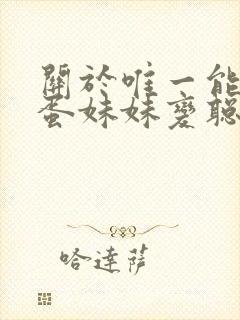 關於唯一能
蛋妹妹變聰
哈達薩